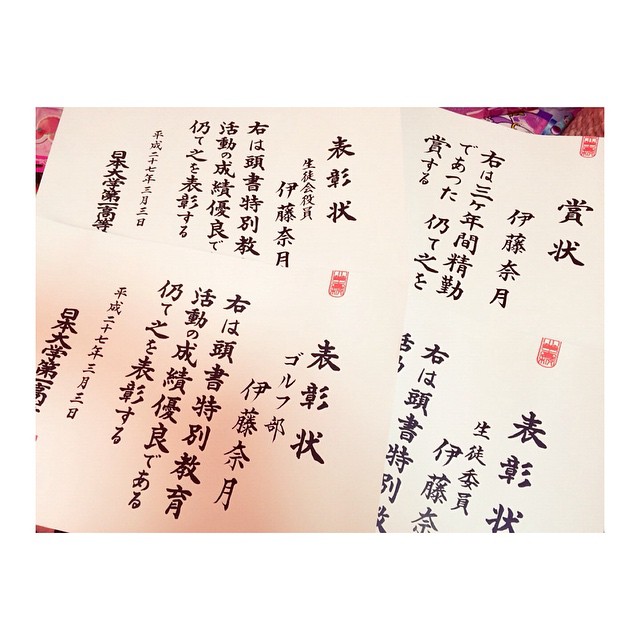 表彰状
生徒会役員
伊藤奈月
右は頭書特別教
活動の成績優良で
仍て之を表彰する
平成二十七年三月三日
日本大学第一高等
賞状
伊藤奈月
右は三ヶ年間精勤
であつた 仍て之を
賞する
表彰状
ゴルフ部
伊藤奈月
右は頭書特別教育
活動の成績優良である
仍て之を表彰する
平成二十七年三月三日
日本大学第一高
表彰状
生徒委員
伊藤奈
右は頭書特別教
活